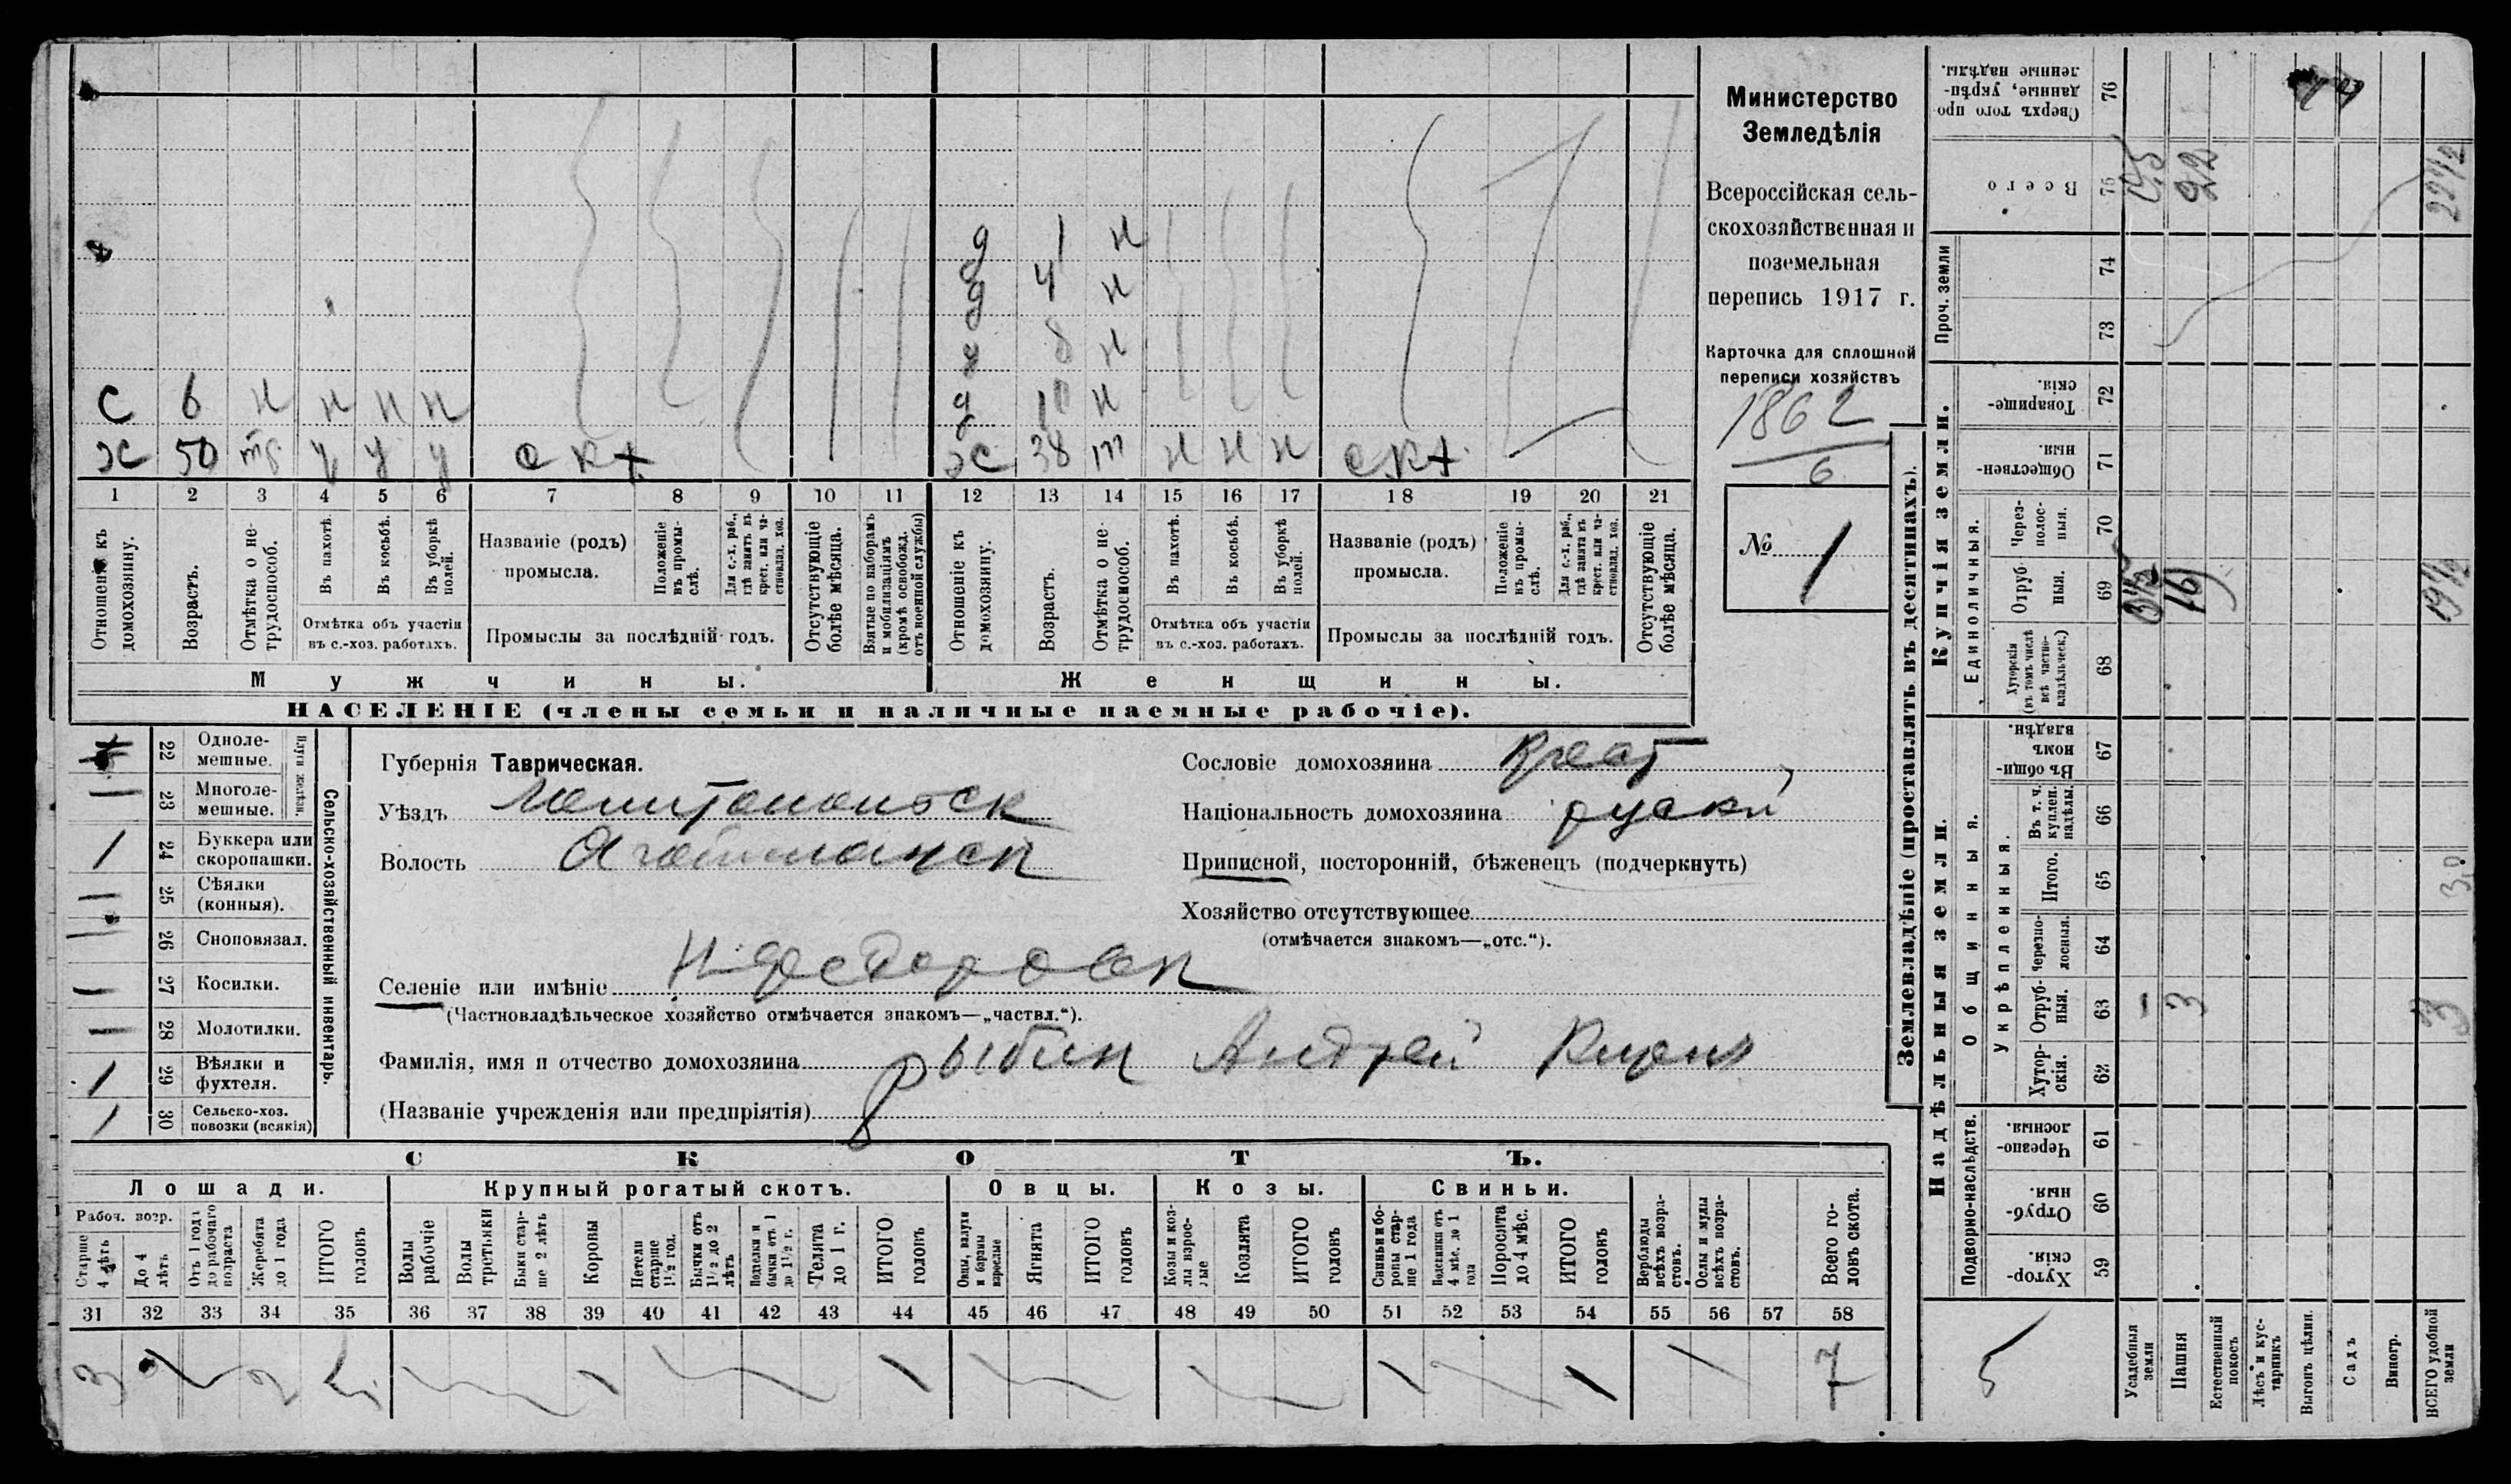 Министерство
Земледѣлія
Всероссійская сель-
скохозяйственная и
поземельная
перепись 1917 г.
Карточка для сплошной
переписи хозяйствъ
1862
6
№ 1
д 1 н
д 4 н
8 н
д 10 н
С 6 н н н н
х 50 тр у у у скх
х 38 т н н н скх
1 2 3 4 5 6 7 8 9 10 11 12 13 14 15 16 17 18 19 20 21
Отношеніе къ домохозяину.
Возрастъ.
Отмѣтка о не-трудоспособ.
Въ пахотѣ.
Въ косьбѣ.
Въ уборкѣ полей.
Отмѣтка объ участіи
въ с.-хоз. работахъ.
Названіе (родъ)
промысла.
Положеніе въ промы-слѣ.
Для с.-х. раб., гдѣ занятъ въ крест. или ча-стновлад. хоз.
Промыслы за послѣдній годъ.
Отсутствующіе болѣе мѣсяца.
Взятые по наборамъ и мобилизаціямъ (кромѣ освобожд. отъ военной службы)
Отношеніе къ домохозяину.
Возрастъ.
Отмѣтка о не-трудоспособ.
Въ пахотѣ.
Въ косьбѣ.
Въ уборкѣ полей.
Отмѣтка объ участіи
въ с.-хоз. работахъ.
Названіе (родъ)
промысла.
Положеніе въ промы-слѣ.
Для с.-х. раб., гдѣ занята въ крест. или ча-стновлад. хоз.
Промыслы за послѣдній годъ.
Отсутствующіе болѣе мѣсяца.
Мужчины.
Женщины.
НАСЕЛЕНІЕ (члены семьи и наличные наемные рабочіе).
Сельско-хозяйственный инвентарь.
Плуги желѣзн.
22 Одноле-мешные.
23 Многоле-мешные.
24 Буккера или скоропашки. 1
25 Сѣялки (конныя).
26 Сноповязал.
27 Косилки.
28 Молотилки.
29 Вѣялки и фухтеля. 1
30 Сельско-хоз. повозки (всякія) 1
Губернія Таврическая.
Уѣздъ Мелитопольск
Волость Агайманск
Селеніе или имѣніе Н-Федоровк
(Частновладѣльческое хозяйство отмѣчается знакомъ—„частвл.“).
Фамилія, имя и отчество домохозяина Рыбин Андрей Кирил
(Названіе учрежденія или предпріятія)
Сословіе домохозяина Крест
Національность домохозяина руский
Приписной, посторонній, бѣженецъ (подчеркнуть)
Хозяйство отсутствующее
(отмѣчается знакомъ—„отс.“).
СКОТЪ.
Лошади.
Крупный рогатый скотъ.
Овцы.
Козы.
Свиньи.
Рабоч. возр.
Старше 4 лѣтъ
До 4 лѣтъ
Отъ 1 года до рабочаго возраста
Жеребята до 1 года
ИТОГО головъ
Волы рабочіе
Волы третьяки
Быки стар-ше 2 лѣтъ
Коровы
Нетели старше 1½ год.
Бычки отъ 1½ до 2 лѣтъ
Подтелки и бычки отъ 1 до 1½ г.
Телята до 1 г.
ИТОГО головъ
Овцы, валухи и бараны взрослые
Ягнята
ИТОГО головъ
Козы и коз-лы взрос-лые
Козлята
ИТОГО головъ
Свиньи и бо-ровы стар-ше 1 года
Подсвинки отъ 4 мѣс. до 1 года
Поросята до 4 мѣс.
ИТОГО головъ
Верблюды всѣхъ возра-стовъ.
Ослы и мулы всѣхъ возра-стовъ.
Всего го-ловъ скота.
31 32 33 34 35 36 37 38 39 40 41 42 43 44 45 46 47 48 49 50 51 52 53 54 55 56 57 58
3 2 5 1 1 1 1 7
Землевладѣніе (проставлять въ десятинахъ).
Купчія земли.
Надѣльныя земли.
Сверхъ того про-данные, укрѣп-ленные надѣлы. 76
Всего 75 22 22½
Проч. земли 74 73
Товарище-скія. 72
Обществен-ныя. 71
Единоличныя.
Через-полос-ныя. 70
Отруб-ныя. 69 3½ 16 19½
Хуторскія (въ томъ числѣ всѣ частно-владѣльческ.) 68
Общинныя.
Въ общи-номъ владѣн. 67
Укрѣпленныя.
Въ т. ч. куплен. надѣлы. 66
Итого. 65 3,0
Черезпо-лосныя. 64
Отруб-ныя. 63 – 3 3
Хутор-скія. 62
Подворно-наслѣдств.
Черезпо-лосныя. 61
Отруб-ныя. 60
Хутор-скія. 59
5
Усадебныя земли
Пашня
Естественный покосъ
Лѣсъ и кус-тарникъ
Выгонъ цѣлин.
Садъ
Виногр.
ВСЕГО удобной земли